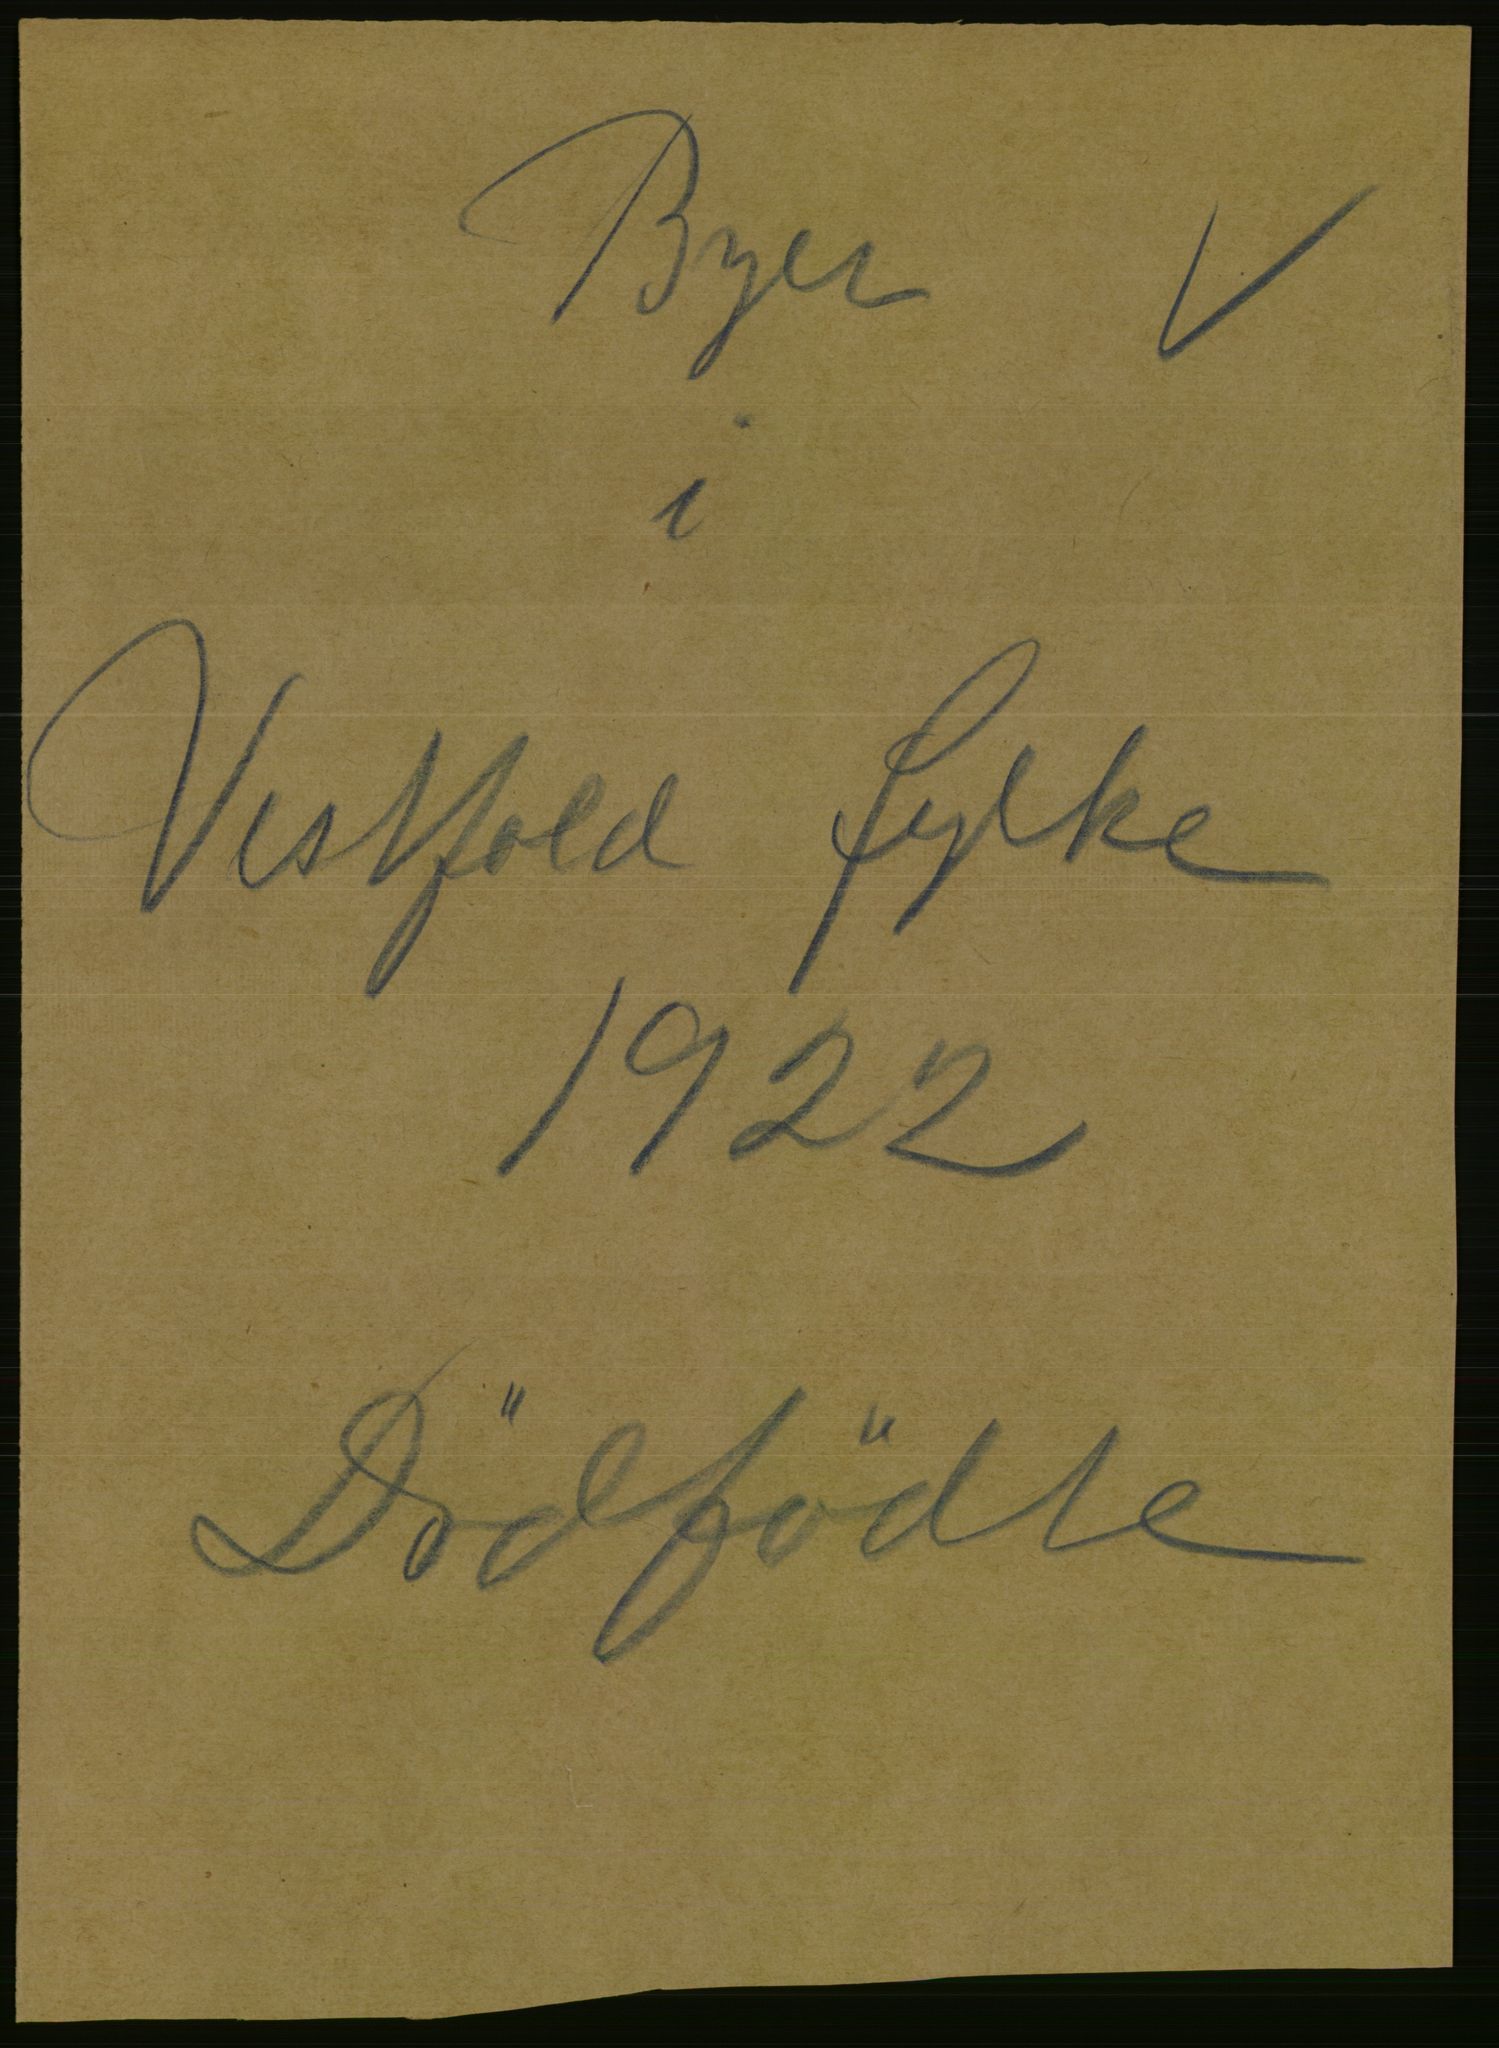 Byer √
i
Vestfold fylke
1922
Dödfödte